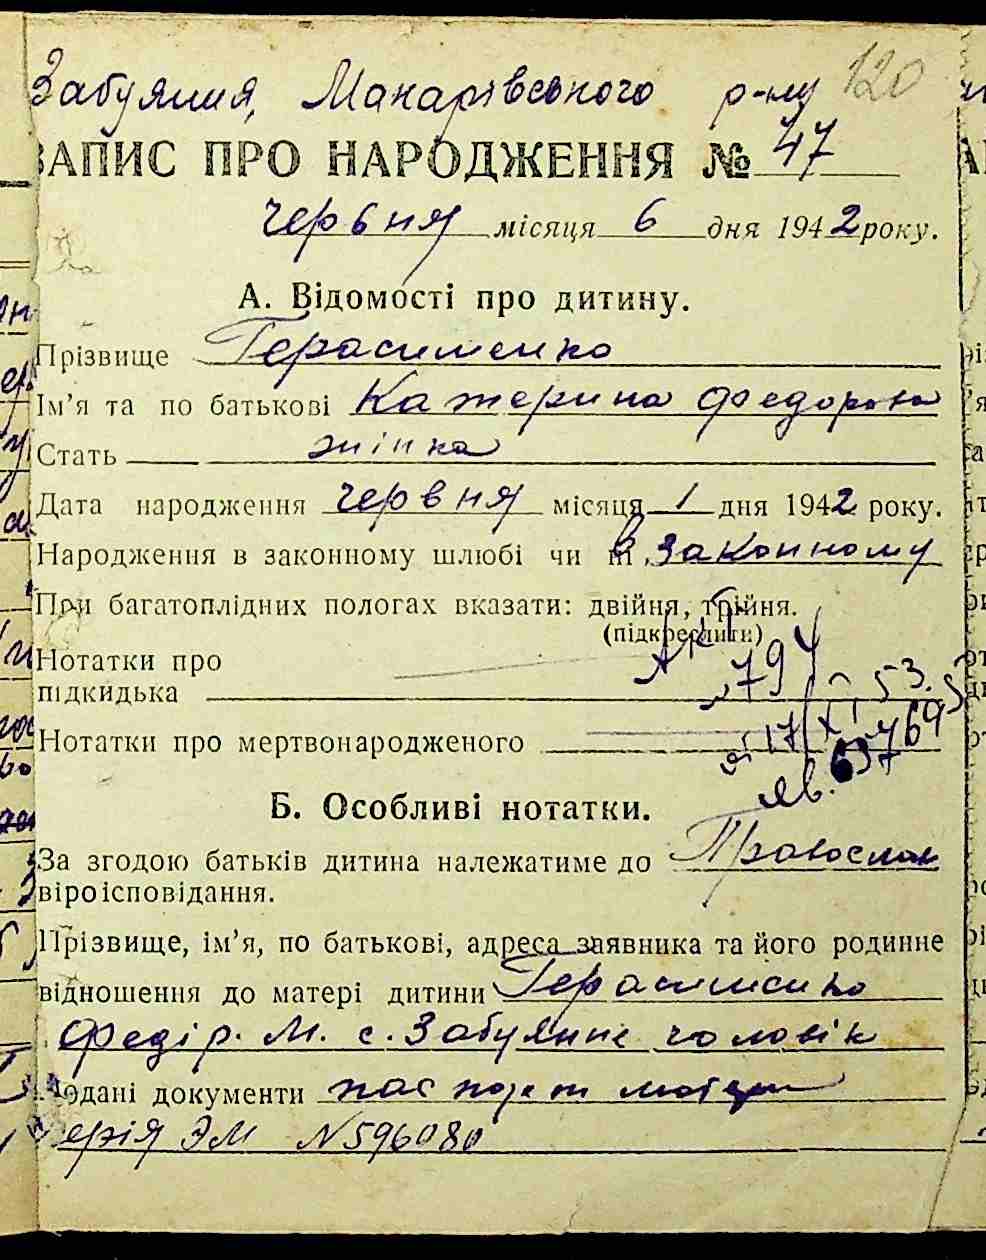 Забуяння, Макарівського р-ну 120
ЗАПИС ПРО НАРОДЖЕННЯ № 47
червня місяця 6 дня 1942 року.
А. Відомості про дитину.
Прізвище Герасименко
Ім'я та по батькові Катерина Федоровна
Стать жінка
Дата народження червня місяця 1 дня 1942 року.
Народження в законному шлюбі чи ні, в законному
При багатоплідних пологах вказати: двійня, трійня.
(підкреслити)
Нотатки про
підкидька
Нотатки про мертвонародженого
Б. Особливі нотатки.
За згодою батьків дитина належатиме до Православ
віроісповідання.
Прізвище, ім'я, по батькові, адреса заявника та його родинне
відношення до матері дитини Герасименко
Федір. М. с. Забуянне чоловік
Подані документи паспорт матери
серія ЭМ N596080